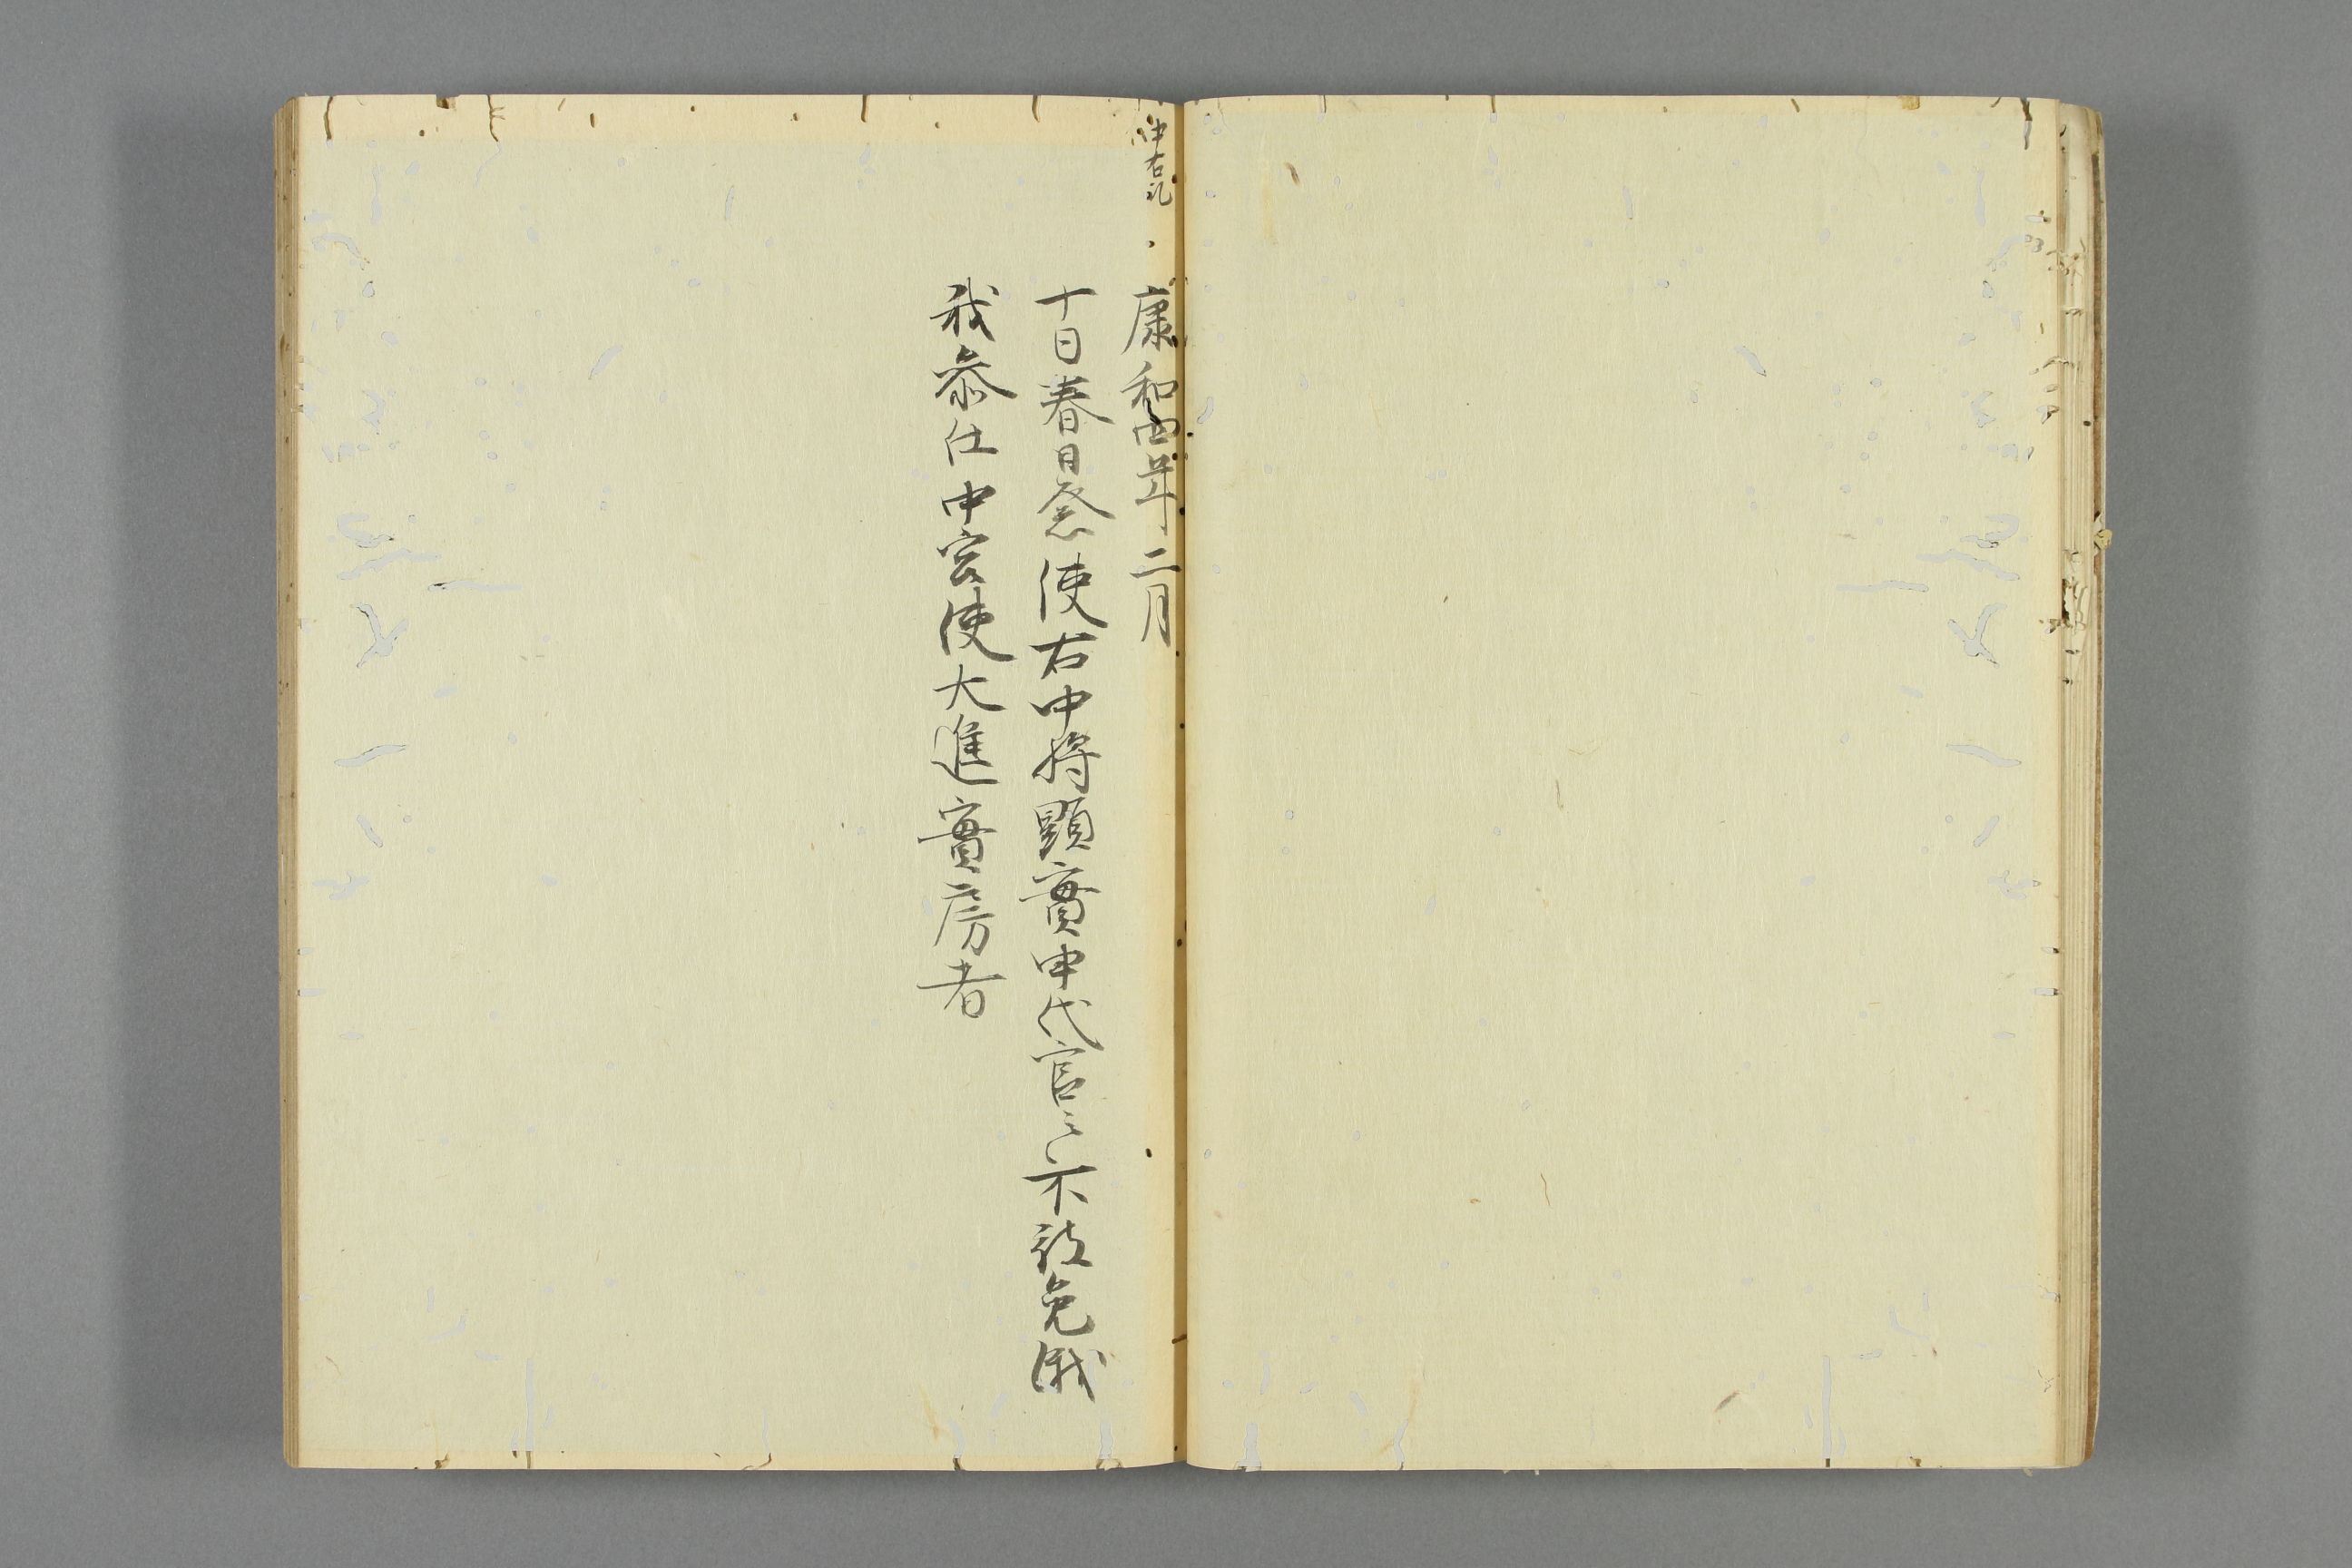 中右記
康和四年二月
十日春日祭使右中将顕實申代官々不被免俄
我参仕中宮使大進實房者